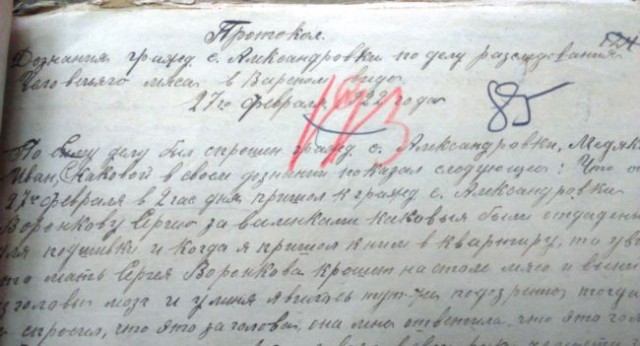 Протокол.
124
Дознания гражд с. Александровки по делу расследования
Человечьяго мяса в Вареном виде
27го февраля 1922 года
193
85
По сему делу был спрошен гражд с. Александровки, Медяк
Иван, Каковой в своем дознании показал следующее: Что
27го февраля в 2 час дня пришол к гражд с. Александровки
Воронкову Сергию за валенками каковыя были отдаден
для подшивки и когда я пришол к ним в квартиру, то уви
что мать Сергея Воронкова крошит на столе мясо и выни
из головы мозг и у меня явилось тут-же подозрение тогда
я спросил, что это за голова, она мне ответила что это гол